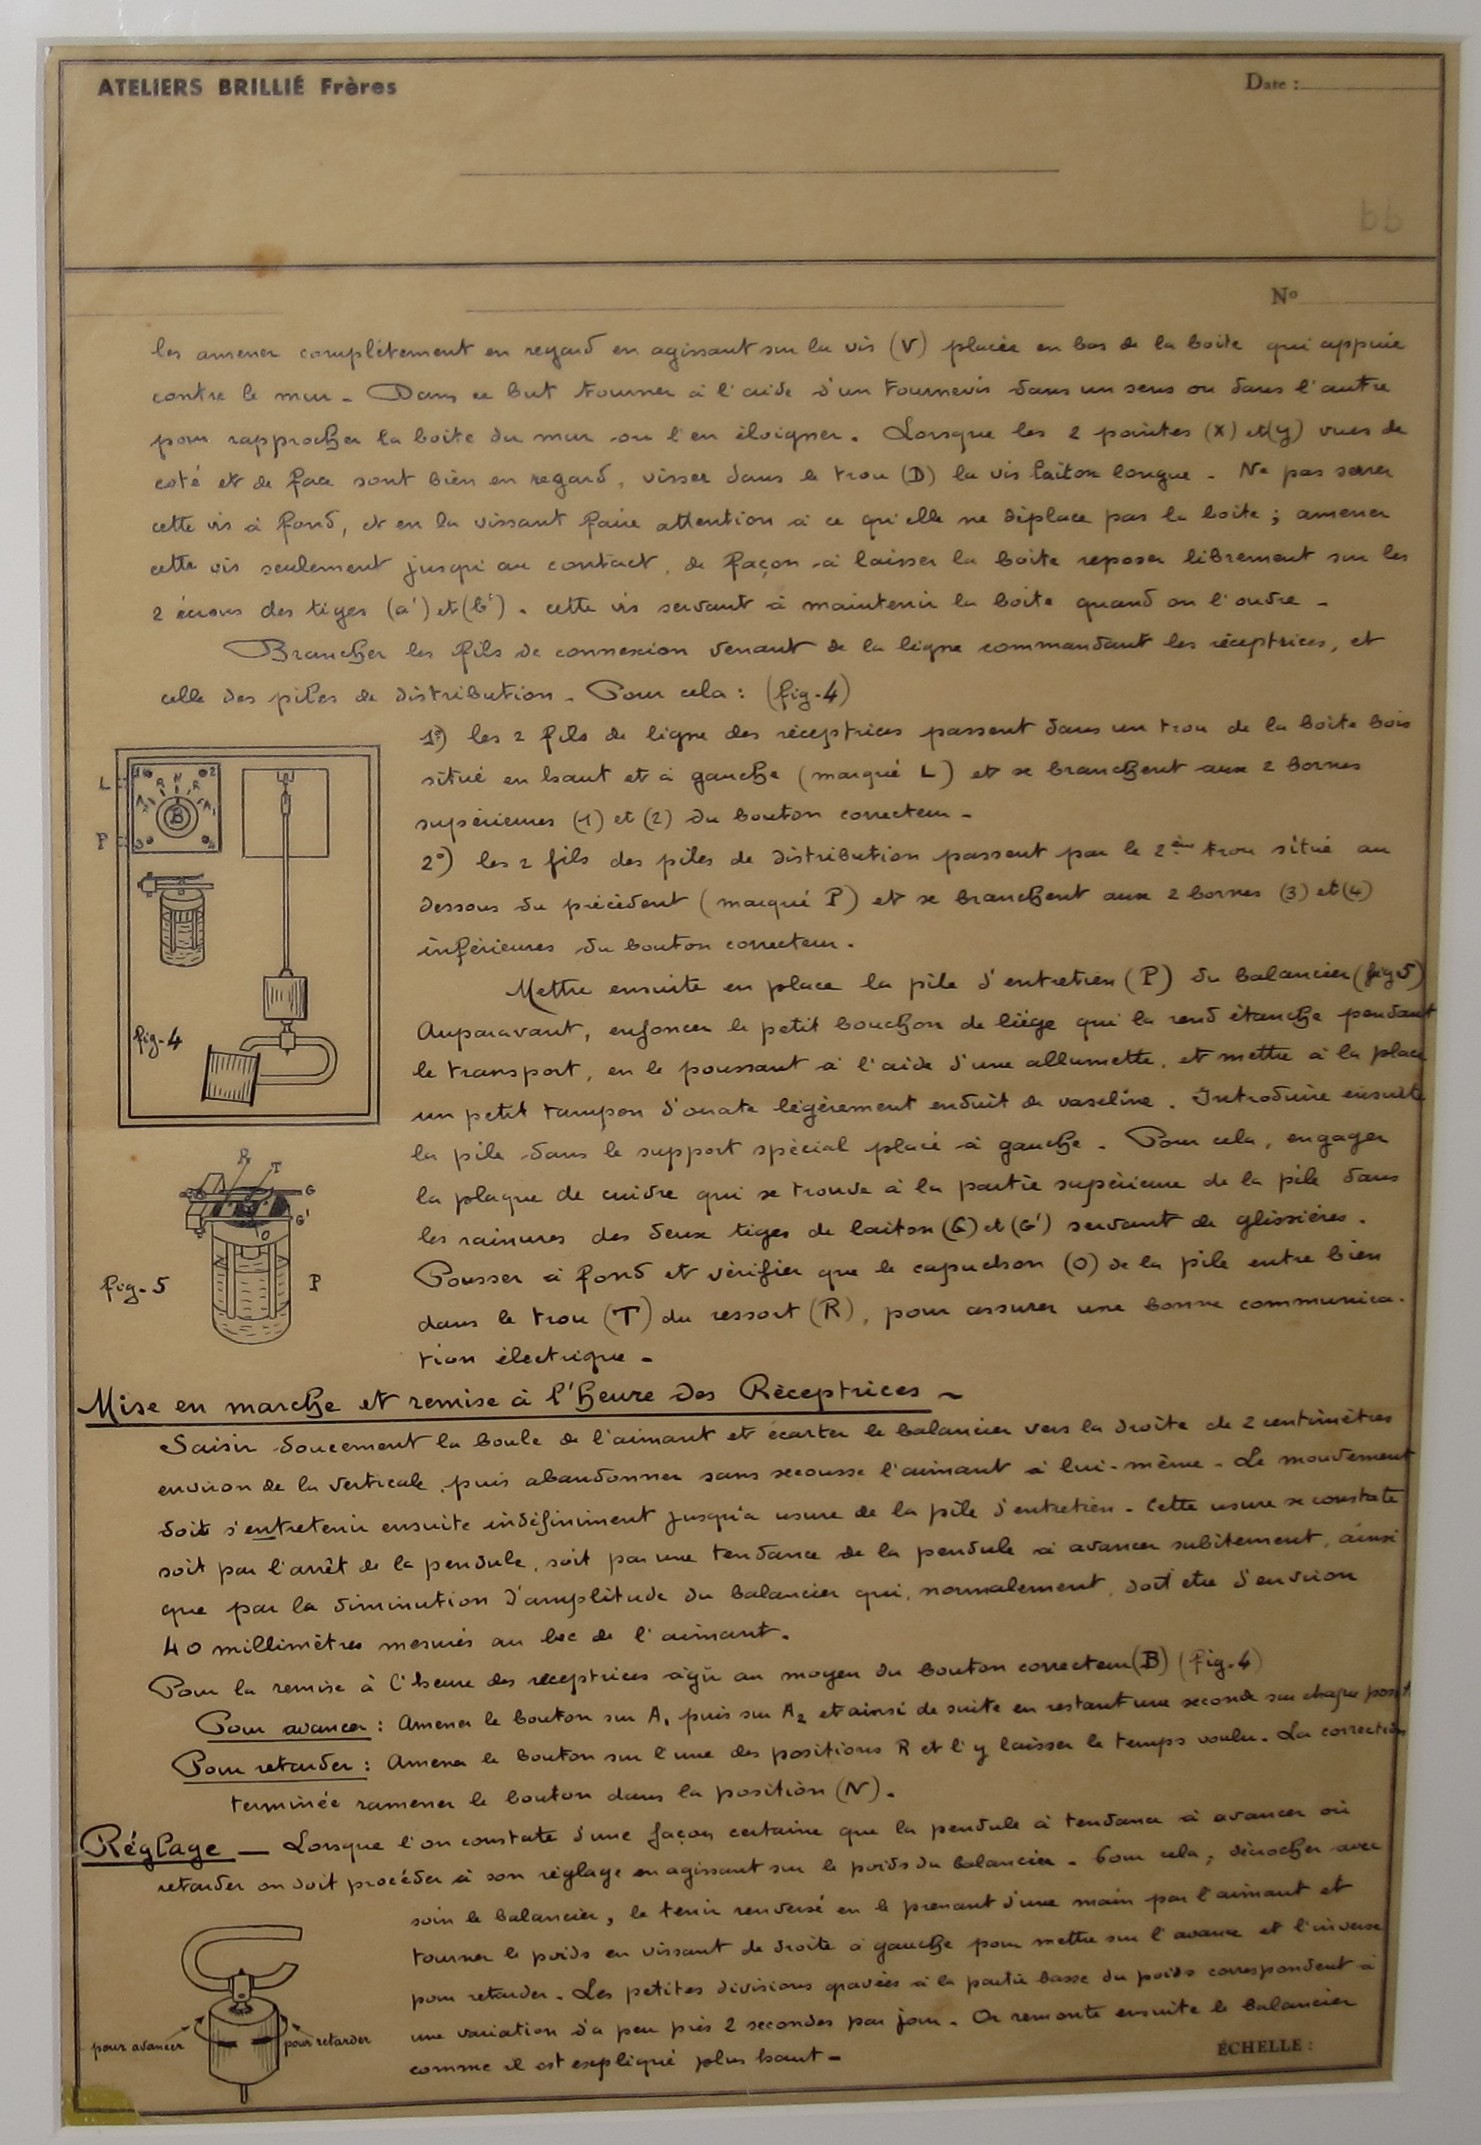 ATELIERS BRILLIÉ Frères
Date :
No
les amener complètement en regard en agissant sur la vis (V) placée en bas de la boite qui appuie
contre le mur - Dans ce but tourner à l'aide d'un tournevis dans un sens ou dans l'autre
pour rapprocher la boite du mur ou l'en éloigner. Lorsque les 2 pointes (X) et (y) vues de
coté et de face sont bien en regard, visser dans le trou (D) la vis laiton longue - Ne pas serrer
cette vis à fond, et en la vissant faire attention à ce qu'elle ne déplace pas la boite ; amener
cette vis seulement jusqu'au contact, de façon à laisser la boite reposer librement sur les
2 écrous des tiges (a') et (b'). cette vis servant à maintenir la boite quand on l'ouvre -
Brancher les fils de connexion venant de la ligne commandant les réceptrices, et
celle des piles de distribution - Pour cela : (fig-4)
1º) les 2 fils de ligne des réceptrices passent dans un trou de la boîte bois
situé en haut et à gauche (marqué L) et se branchent aux 2 bornes
supérieures (1) et (2) du bouton correcteur -
2º) les 2 fils des piles de distribution passent par le 2ème trou situé au
dessous du précédent (marqué P) et se branchent aux 2 bornes (3) et (4)
inférieures du bouton correcteur.
Mettre ensuite en place la pile d'entretien (P) du balancier (fig 5)
Auparavant, enfoncer le petit bouchon de liège qui la rend étanche pendant
le transport, en le poussant à l'aide d'une allumette, et mettre à la place
un petit tampon d'ouate légèrement enduit de vaseline. Introduire ensuite
la pile dans le support spécial placé à gauche - Pour cela, engager
la plaque de cuivre qui se trouve à la partie supérieure de la pile dans
les rainures des deux tiges de laiton (G) et (G') servant de glissières.
Pousser à fond et vérifier que le capuchon (O) de la pile entre bien
dans le trou (T) du ressort (R), pour assurer une bonne communica-
tion électrique -
L
P
1
2
3
4
A2
R
N
R
A1
B
fig-4
R
T
G
G'
O
fig-5
P
Mise en marche et remise à l'heure des Réceptrices -
Saisir doucement la boule de l'aimant et écarter le balancier vers la droite de 2 centimètres
environ de la verticale, puis abandonner sans secousse l'aimant à lui-même - Le mouvement
doit s'entretenir ensuite indéfiniment jusqu'à usure de la pile d'entretien - Cette usure se constate
soit par l'arrêt de la pendule, soit par une tendance de la pendule à avancer subitement, ainsi
que par la diminution d'amplitude du balancier qui, normalement, doit etre d'environ
40 millimètres mesurés au bec de l'aimant.
Pour la remise à l'heure des réceptrices agir au moyen du bouton correcteur (B) (fig-4)
Pour avancer : Amener le bouton sur A1 puis sur A2 et ainsi de suite en restant une seconde sur chaque posit
Pour retarder : Amener le bouton sur l'une des positions R et l'y laisser le temps voulu - La correction
terminée ramener le bouton dans la position (N).
Réglage - Lorsque l'on constate d'une façon certaine que la pendule à tendance à avancer où
retarder on doit procéder à son réglage en agissant sur le poids du balancier - Pour cela, décrocher avec
soin le balancier, le tenir renversé en le prenant d'une main par l'aimant et
tourner le poids en vissant de droite à gauche pour mettre sur l'avance et l'inverse
pour retarder - Les petites divisions gravées à la partie basse du poids correspondent à
une variation d'à peu près 2 secondes par jour - On remonte ensuite le balancier
comme il est expliqué plus haut -
pour avancer
pour retarder
ÉCHELLE :